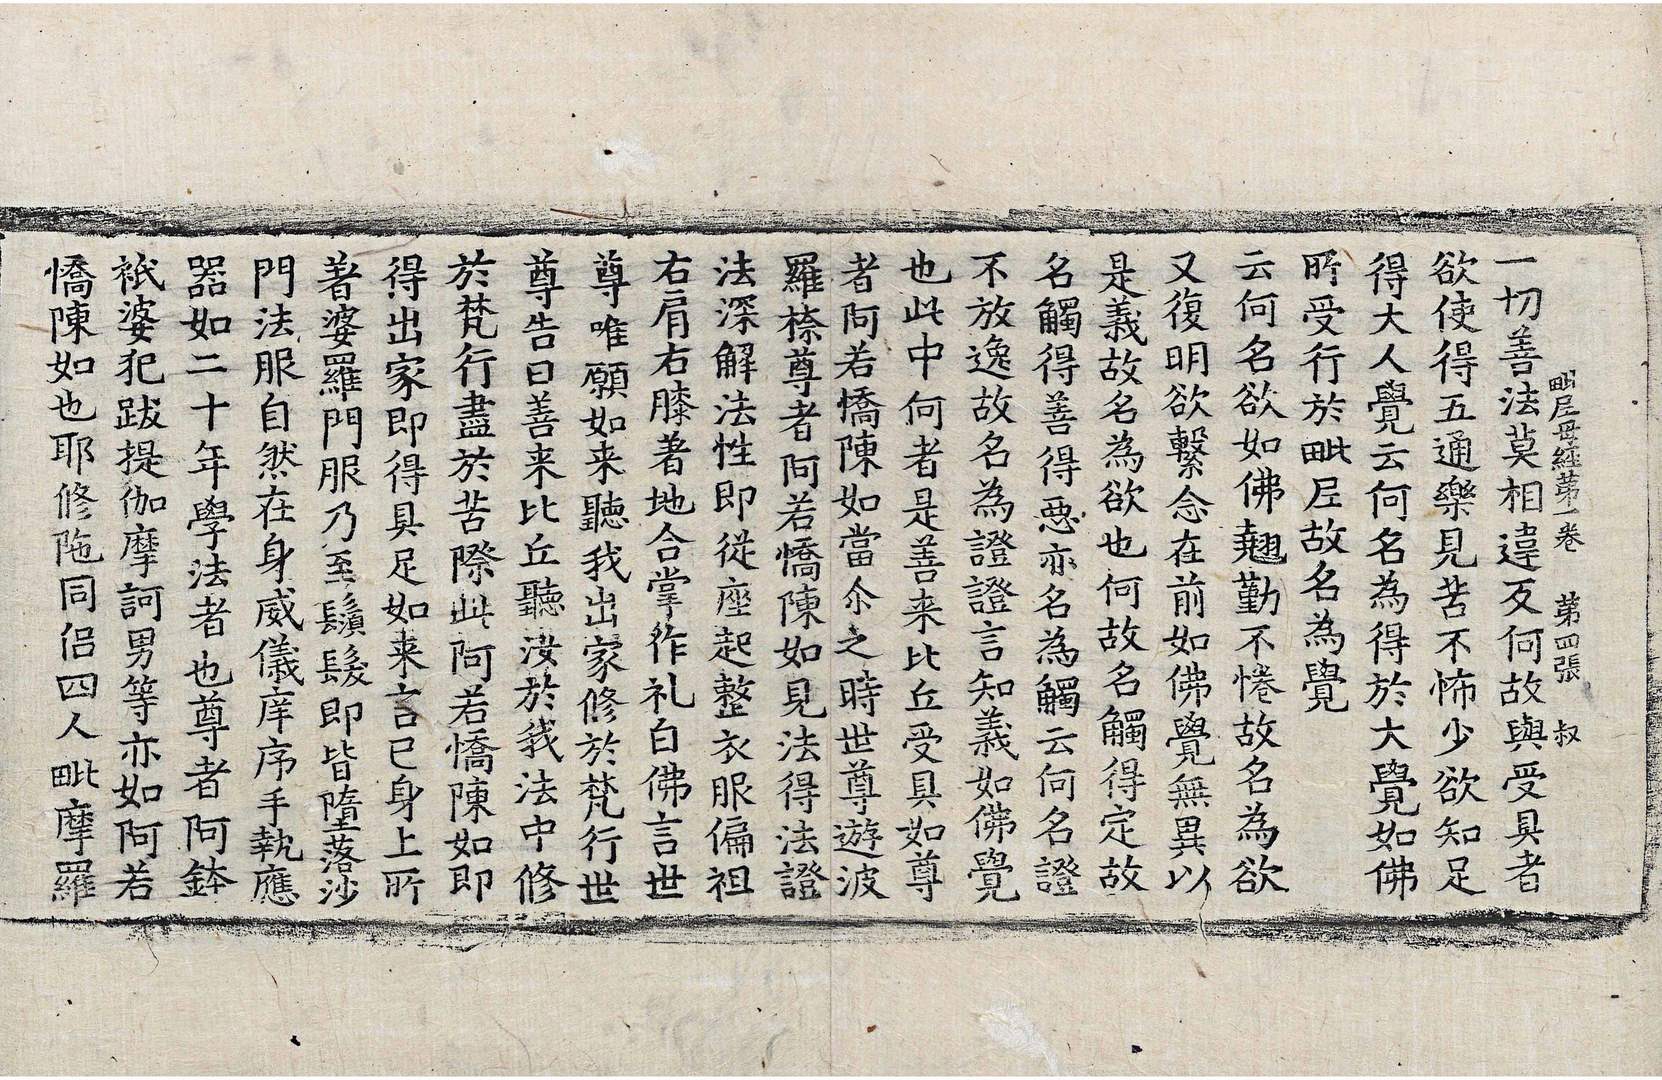 毗尼母經第一卷　第四張　叔
一切善法莫相違反何故與受具者
欲使得五通樂見苦不怖少欲知足
得大人覺云何名為得於大覺如佛
所受行於毗尼故名為覺
云何名欲如佛翹勤不惓故名為欲
又復明欲繫念在前如佛覺無異以
是義故名為欲也何故名觸得定故
名觸得善得惡亦名為觸云何名證
不放逸故名為證證言知義如佛覺
也此中何者是善来比丘受具如尊
者阿若憍陳如當尒之時世尊遊波
羅㮈尊者阿若憍陳如見法得法證
法深解法性即從座起整衣服偏袒
右肩右膝著地合掌作礼白佛言世
尊唯願如来聽我出家修於梵行世
尊告曰善来比丘聽汝於我法中修
於梵行盡於苦際此阿若憍陳如即
得出家即得具足如来言已身上所
著婆羅門服乃至鬚髮即皆墮落沙
門法服自然在身威儀庠序手執應
器如二十年學法者也尊者阿鉢
祇婆犯跋提伽摩訶男等亦如阿若
憍陳如也耶修陁同侣四人毗摩羅